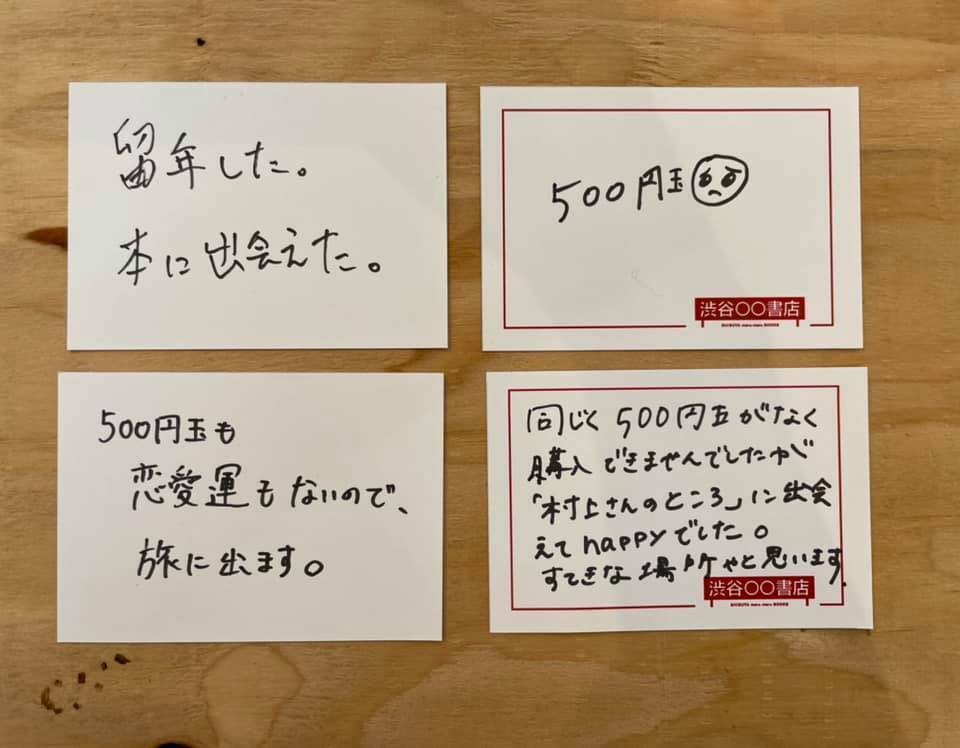 留年した。
本に出会えた。
500円玉
渋谷〇〇書店
SHIBUYA maru maru BOOKS
500円玉も
恋愛運もないので、
旅に出ます。
同じく500円玉がなく
購入できませんでしたが
「村上さんのところ」に出会
えてhappyでした。
すてきな場所やと思います.
渋谷〇〇書店
SHIBUYA maru maru BOOKS